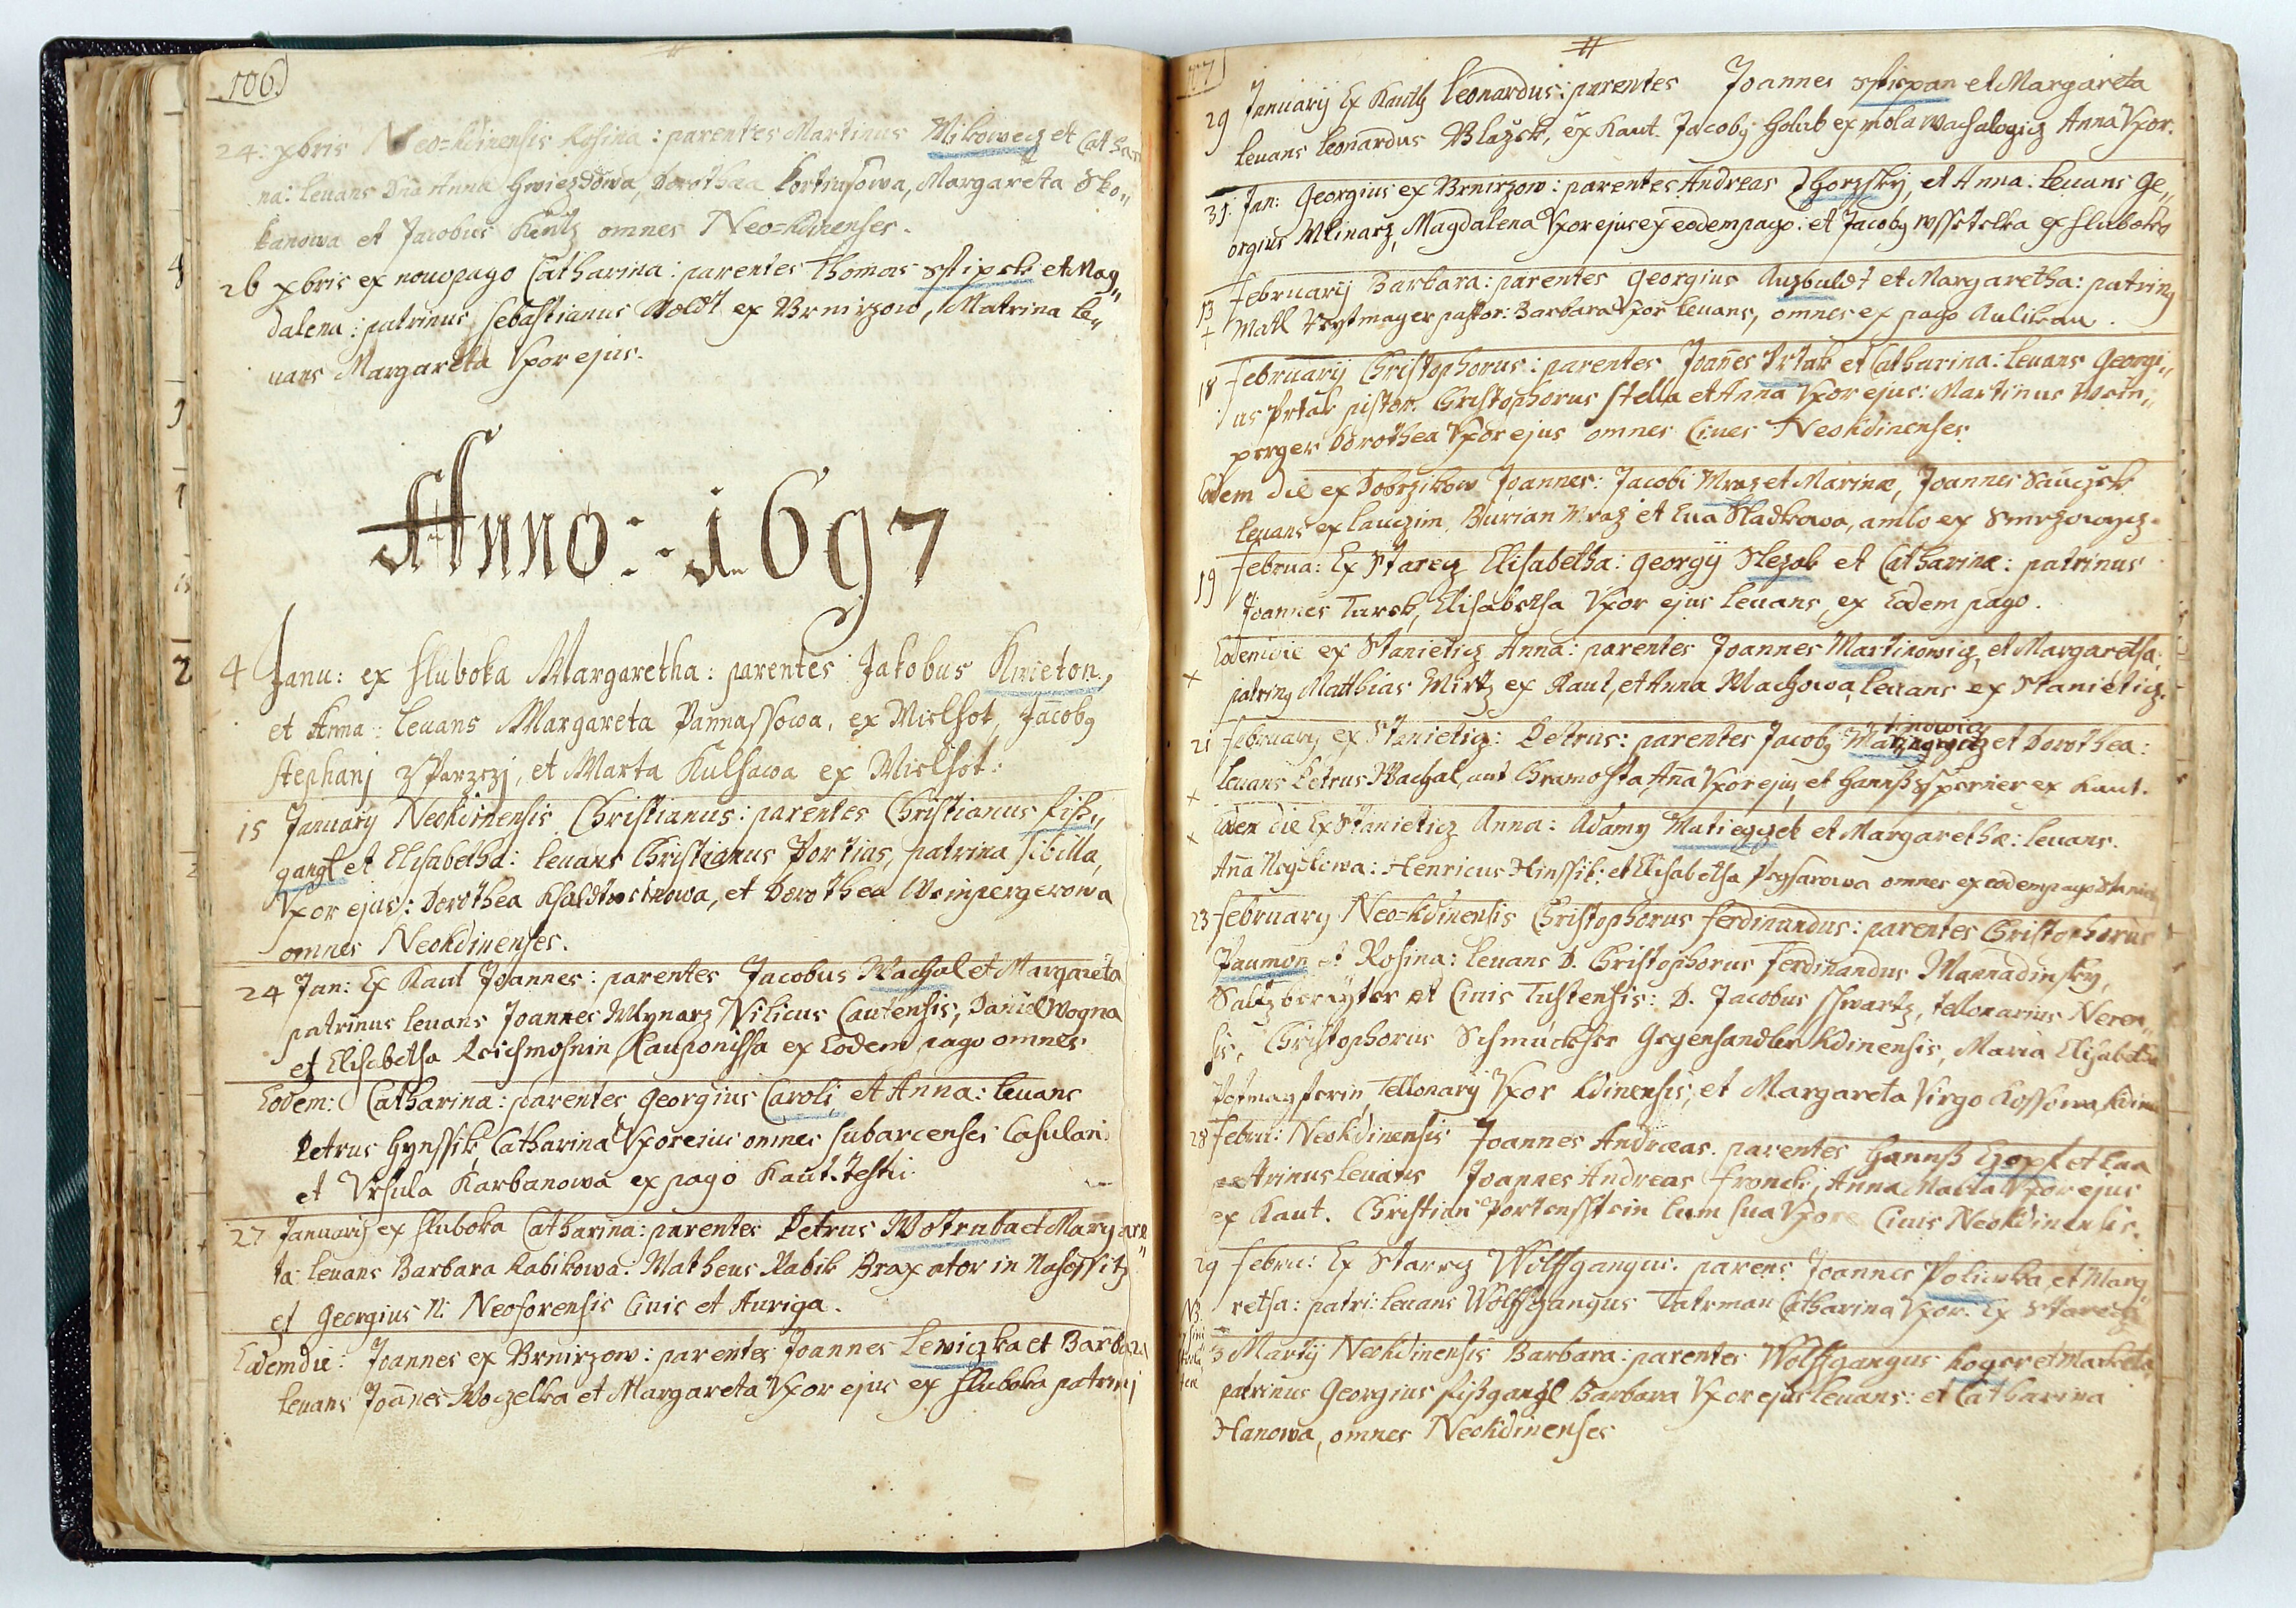 106
24. xbris Neo=Kdinensis Rosina : parentes Martinus Mikowecz et Cathari
na: leuans Dna Anna Gwiezdowa, Dorothea Margareta Sko„
kanowa et Jacobus Kintz omnes Neo=Kdinenses.
26 xbris ex nouopago Catharina : parentes Thomas Sstipek et Mag„
dalena : patrinus Sebastianus Voldt ex Brnirzow, Matrina le„
uans Margareta Vxor ejus.
Anno: 1697
4 Janu: ex Hluboka Margaretha : parentes Jakobus Kwieton,
et Anna : leuans Margareta Pannassowa, ex Mielhot, Jacoby
Stephanj z Parzezj, et Marta Kulhawa ex Mielhot:
15 January Neokdinensis Christianus : parentes Christianus Fisz„
gangl et Elisabetha: leuans Christianus Portius, patrina Sibilla,
Vxor ejus: Dorothea et Dorothea Weinpergerowa
omnes Neokdinenses.
24 Jan: Ex Kaut Joannes : parentes Jacobus Wachal et Margareta
patrinus leuans Joannes Mlynarz Vilicus Cautensis, Daniel Wogna
et Elisabetha Reichmohnin, Kauponissa ex Eodem pago omnes
Eodem: Catharina : parentes Georgius Caroli, et Anna : leuans
Petrus Hynssik, Catharina Vxor eius omnes subarcenses Casulari
et Vrsula Karbanowa ex pago Kaut. Testii.
27 Januarij ex Hluboka Catharina: parentes Petrus Wotruba et Margare„
ta: leuans Barbara Rabikowa: Matheus Rabik Braxator in
et Georgius N: Neoforensis Ciuis et Auriga.
Eodem die: Joannes ex Brnirzow : parentes Joannes Lewiczka et Barbara
leuans Joannes Woczelka et Margareta Vxor ejus ex Hluboka patrinj
107
29 January Ex Kautz Leonardus : parentes Joannes Sstiepan et Margareta
leuans Leonardus Blazek, ex Kaut. Jacoby Holub ex mola Anna Vxor.
31. Jan: Georgius ex Brnirzow : parentes Andreas Zhorzsky, et Anna: leuans Ge„
orgius Mlinarz, Magdalena Vxor ejus ex eodem pago. et Jacoby Wssetelka ex Hluboka
13 February Barbara: parentes Georgius Auzbuldt et Margaretha: patriny
+ Matl pastor: Barbara Vxor leuans, omnes ex pago Aulikau.
18 February Christophorus : parentes Joannes Prtak et Catharina: leuans Georgi„
us Prtak pistor. Christophorus Stella et Anna Vxor ejus: Martinus Wein„
perger Dorothea Vxor ejus omnes Ciues Neokdinenses.
Eodem die ex Dobrzikow Joannes: Jacobi Mraz et Marinae, Joannes Sauczek
leuans ex Lauczim, Burian Mraz et Eua Sladkowa, ambo ex Smrzowycz.
19 Februa: Ex Starecz Elisabetha: Georgij Slezak et Catharinae: patrinus
Joannes Turek, Elisabetha Vxor ejus leuans, ex Eodem pago.
Eodem die ex Stanieticz Anna: parentes Joannes Martinowicz, et Margaretha:
+ patriny Matthias Wirtz ex Kaut, et Anna Machowa, leuans ex Stanieticz.
21 February ex Stanieticz: Petrus: parentes Jacoby tinowicz et Dorothea:
+ leuans Petrus Wachal, aut Chramosta Anna Vxor ejus, et Hannsz Sperner ex Kaut.
Eodem die Ex Stanieticz Anna: Adamy Matiegczek et Margarethae: leuans.
+ Anna Henricus Hinssik: et Elisabetha omnes ex eodem pago
23 February Neo=Kdinensis Christophorus Ferdinandus: parentes Christophorus
Paumon et Rosina: leuans D. Christophorus Ferdinandus Mannadinsky,
Saltzbereyter et Ciuis Tustensis: D. Jacobus Schwartz, tellonarius Neren„
sis, Christophorus Schmückher Gegenhandler Kdinensis, Maria Elisabetha
Tellonary Vxor Kdinensis, et Margareta Virgo Kossowa,
28 Febru: Neokdinensis Joannes Andreas. parentes Hannsz Czopf et Eua
patrinus leuans Joannes Andreas Fronck, Anna Maria Vxor ejus
ex Kaut. Christian Portenstein Cum sua Vxore Ciuis Neokdinensis.
29 Febru: Ex Starecz Wolffgangus: parens Joannes Poliwka et Marg„
retha: patri: leuans Wolffgangus Tatrman Catharina Vxor. Ex Starecz
3 Martij Neokdinensis Barbara: parentes Wolffgangus Koger et Marketa
patrinus Georgius Fiszgangl Barbara Vxor ejus leuans: et Catharina
Hanowa, omnes Neokdinenses